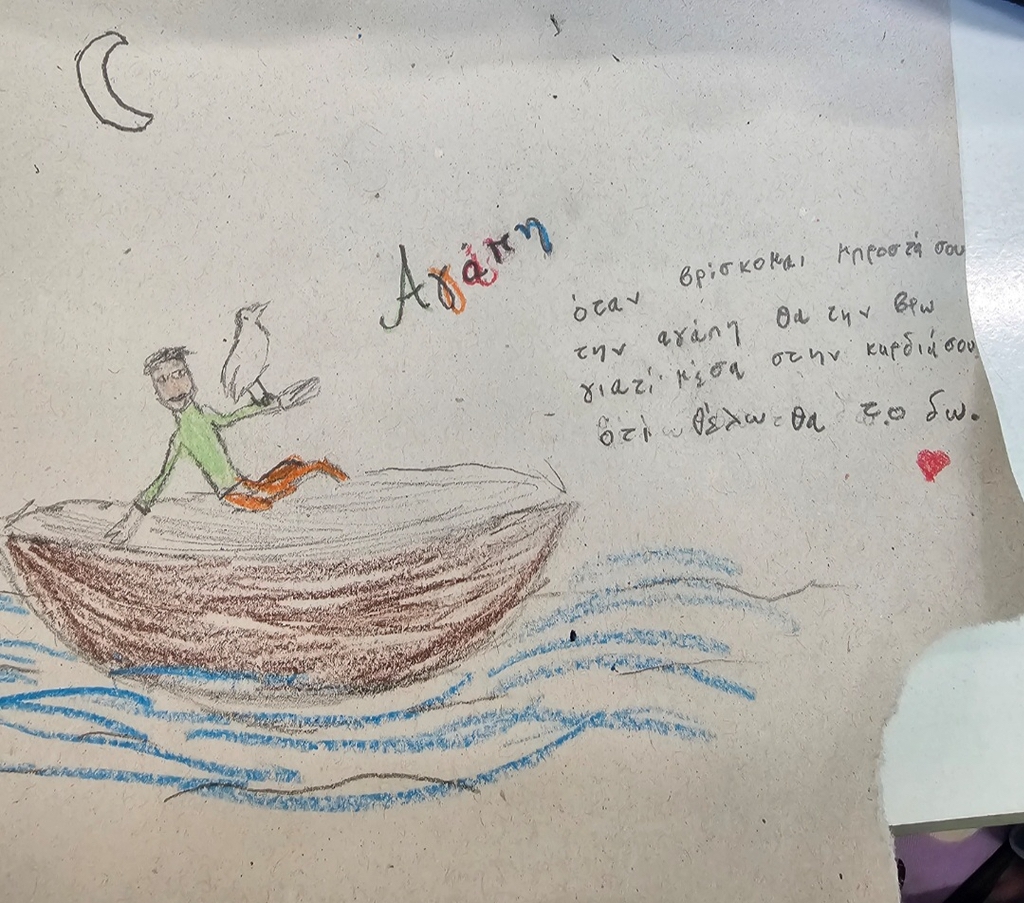 Αγάπη
όταν βρίσκομαι μπροστά σου
την αγάπη θα την βρω
γιατί μέσα στην καρδιά σου
ότι θέλω θα το δω.